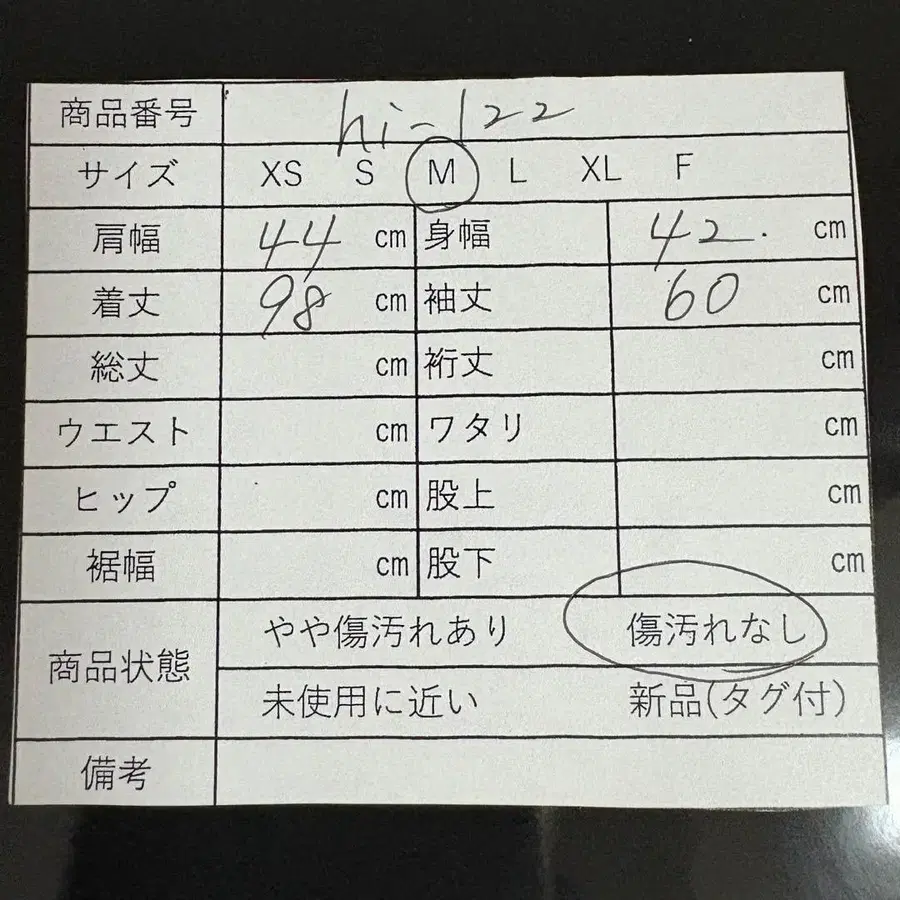 商品番号 hi-122
サイズ XS S M L XL F
肩幅 44 cm 身幅 42. cm
着丈 98 cm 袖丈 60 cm
総丈 cm 裄丈 cm
ウエスト cm ワタリ cm
ヒップ cm 股上 cm
裾幅 cm 股下 cm
商品状態 やや傷汚れあり 傷汚れなし
未使用に近い 新品(タグ付)
備考